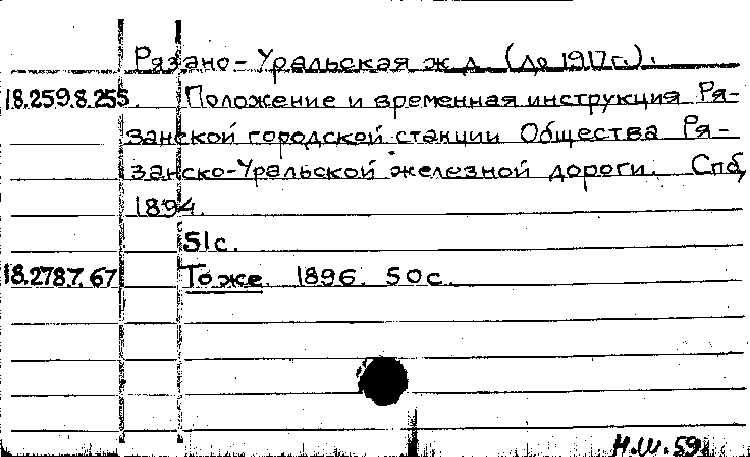 Рязано-Уральская ж.д. (до 1917г.).
18.259.8.255. Положение и временная инструкция Ря-
занской городской станции Общества Ря-
занско-Уральской железной дороги. Спб,
1894.
51с.
18.278.7.67 То же. 1896. 50с.
Н.Ш.59